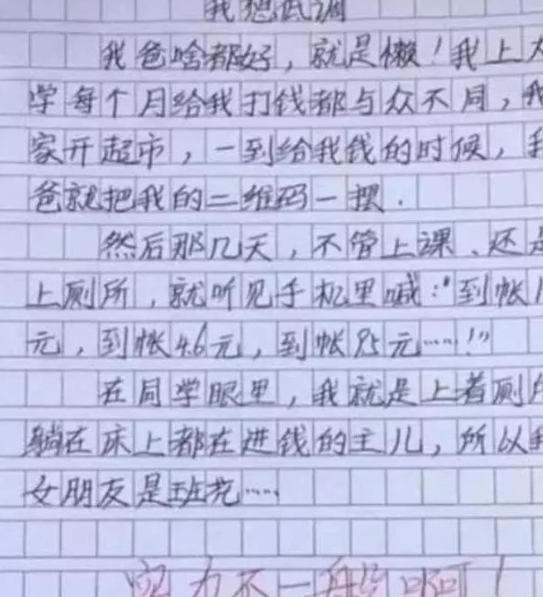 我想低调
我爸啥都好，就是懒！我上大
学每个月给我打钱都与众不同，我
家开超市，一到给我钱的时候，我
爸就把我的二维码一摆.
然后那几天，不管上课、还是
上厕所，就听见手机里喊："到帐1
元，到帐4.6元，到帐85元……！"
在同学眼里，我就是上着厕所
躺在床上都在进钱的主儿，所以我
女朋友是班花……
实力不一般啊！